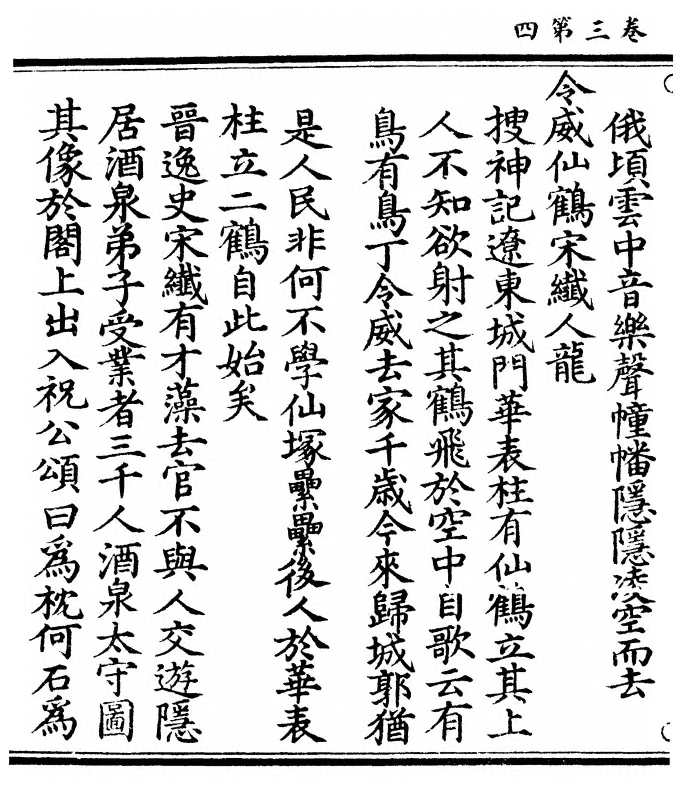 卷三第四
俄頃雲中音樂聲幢幡隱隱凌空而去
令威仙鶴宋纖人龍
搜神記遼東城門華表柱有仙鶴立其上
人不知欲射之其鶴飛於空中自歌云有
鳥有鳥丁令威去家千歲今來歸城郭猶
是人民非何不學仙塚纍纍後人於華表
柱立二鶴自此始矣
晉逸史宋纖有才藻去官不與人交遊隱
居酒泉弟子受業者三千人酒泉太守圖
其像於閣上出入祝公頌曰為枕何石為